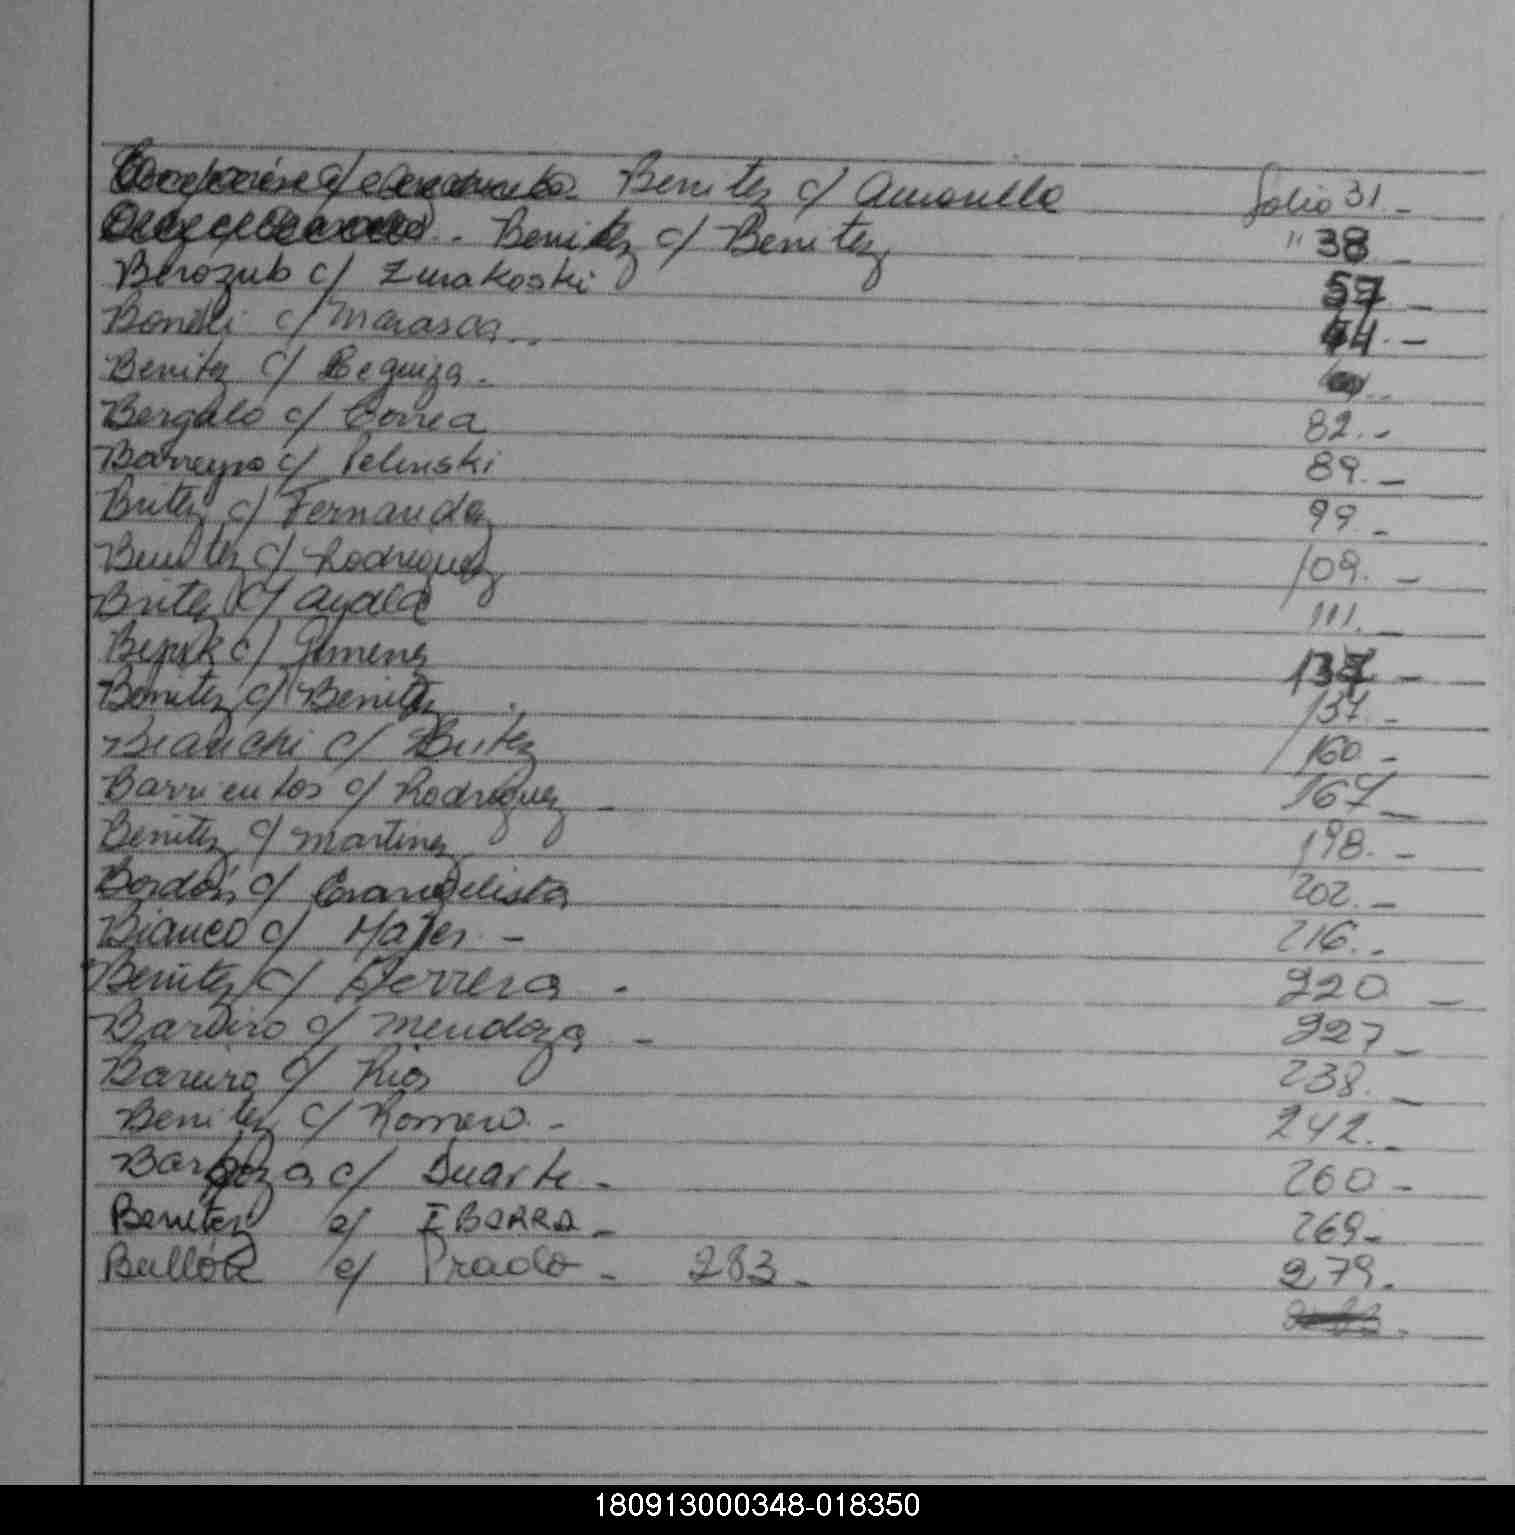 Benitez c/ Amarilla folio 31.-
Benitez c/ Benitez " 38
Berozub c/ Zurakoski 57 -
c/ Marasca 44.-
Benitez c/ Leguiza.-
Bergalo c/ Correa 82.-
Barreyro c/ Pelinski 89.-
Britez c/ Fernandez 99.-
Benitez c/ Rodriguez 109.-
Britez c/ Ayala 111.-
c/ Gimenez 137 -
Benitez c/ Benitez 137.-
Bianchi c/ Britez 160.-
Barrientos c/ Rodriguez - 167 -
Benitez c/ Martinez 198.-
Bordón c/ Evangelista 202.-
Bianco c/ Mayer.- 216.-
Benitez c/ Herrera . 220 -
Bareiro c/ Mendoza - 227 -
Bareiro c/ Rios 238.-
Benitez c/ Romero.- 242.-
Barboza c/ Duarte - 260 -
Benitez c/ IBARRA - 269 -
c/ Prado - 283.- 279.
180913000348-018350